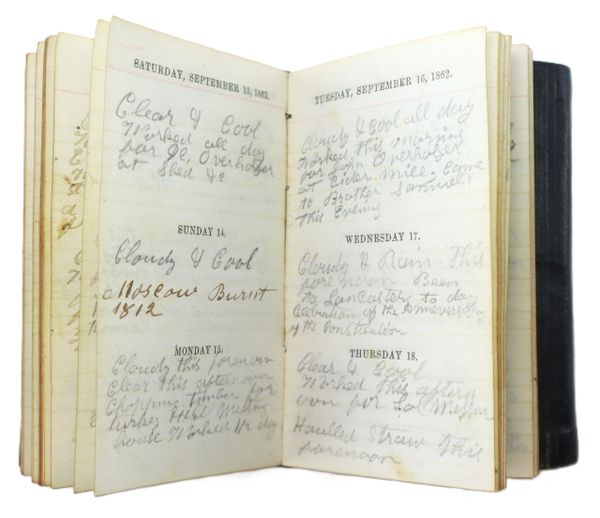 SATURDAY, SEPTEMBER 13, 1862.
Clear & Cool
Worked all day
for Overholzer
at Shed &c
SUNDAY 14.
Cloudy & Cool
Moscow Burnt
1812
MONDAY 15.
Cloudy this forenoon
Clear this afternoon
Chopping timber for
turkey Hill Meeting
house Worked ½ day
TUESDAY, SEPTEMBER 16, 1862.
Cloudy & Cool all day
Worked this morning
for John Overholzer
at Cider Mill Came
to Brother Samuels
this Evening
WEDNESDAY 17.
Cloudy & Rain This
forenoon Been
to Lancaster to day
Celebration of the
of the Constitution
THURSDAY 18.
Clear & Cool
Worked this after
noon for
Haulled Straw This
forenoon